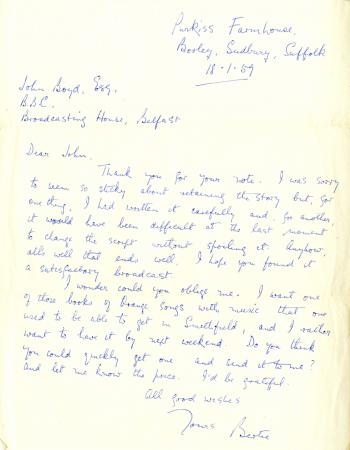 Purkiss Farmhouse,
Borley, Sudbury, Suffolk
18.1.59
John Boyd, Esq.
B.B.C.
Broadcasting House, Belfast
Dear John,
Thank you for your note. I was sorry
to seem so sticky about retaining the story but, for
one thing, I had written it carefully and, for another,
it would have been difficult at the last moment
to change the script without spoiling it. Anyhow,
all's well that ends well. I hope you found it
a satisfactory broadcast.
I wonder could you oblige me. I want one
of those books of Orange songs with music that one
used to be able to get in Smithfield, and I rather
want to have it by next weekend. Do you think
you could quickly get one and send it to me?
and let me know the price. I'd be grateful.
All good wishes
Yours Bertie